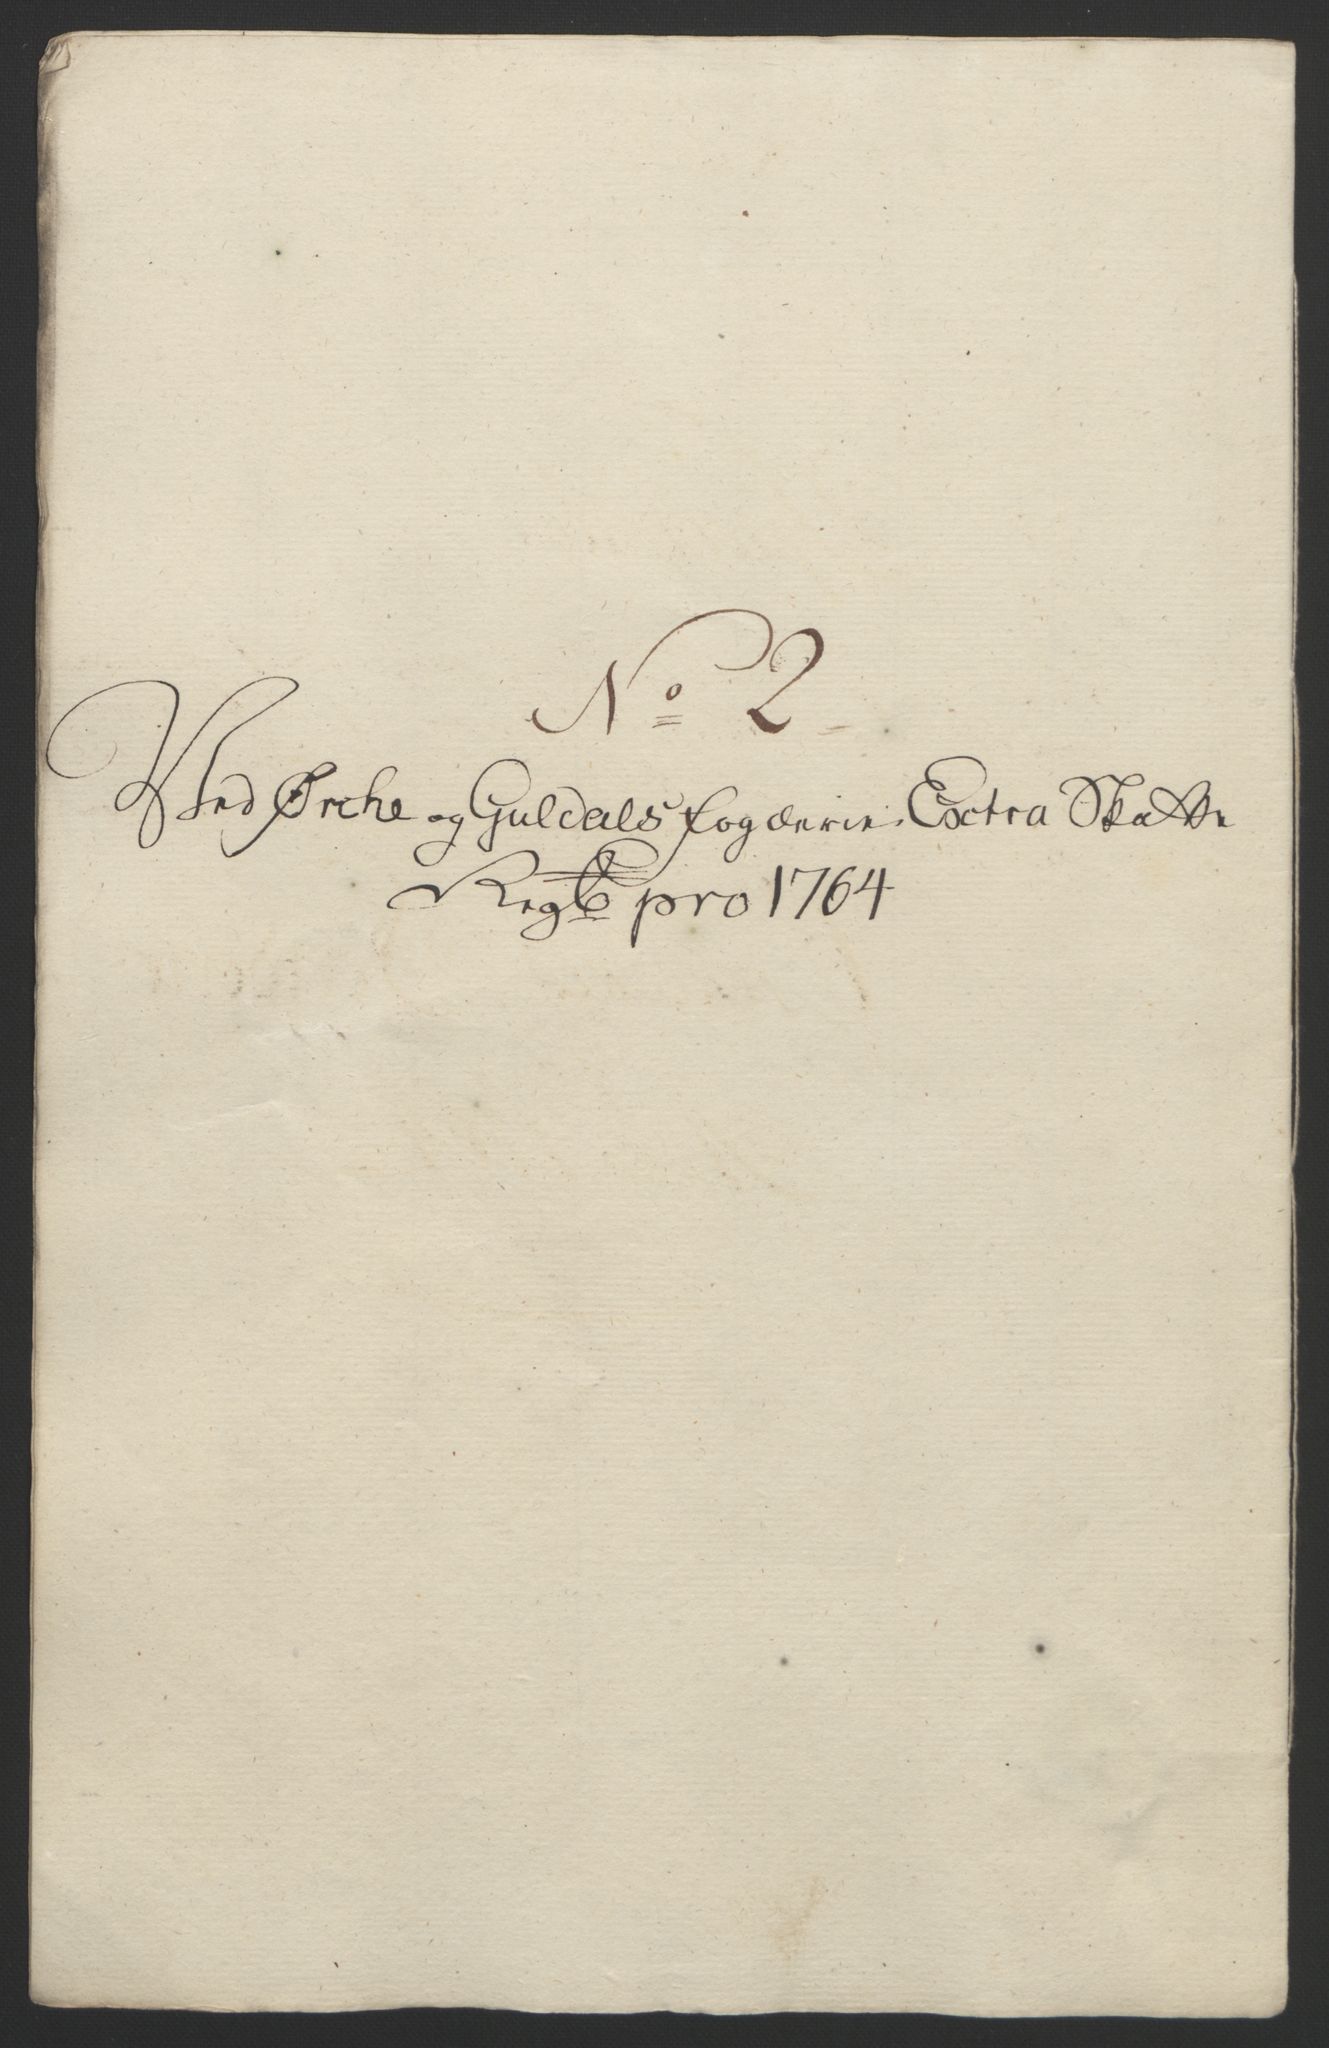 No 2
Ved Ørche og Guldals fogderie Extra Skatte
Regsb pro 1764